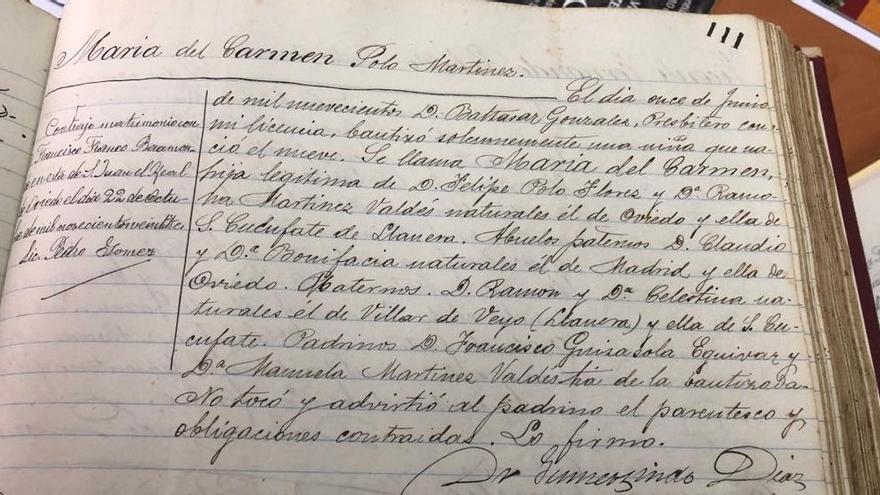 111
Maria del Carmen Polo Martinez.
El dia once de Junio
de mil nuevecientos D. Baltasar Gonzalez, Presbitero con
mi licencia, bautizó solemnemente una niña que na-
ció el nueve. Se llama Maria del Carmen,
hija legitima de D. Felipe Polo Florez y Dª. Ramo-
na Martinez Valdés naturales él de Oviedo y ella de
S. Cucufate de Llanera. Abuelos paternos D. Claudio
y D.ª Bonifacia naturales él de Madrid y ella de
Oviedo. Maternos. D. Ramon y Dª Celestina na-
turales él de Villar de Veyo (Llanera) y ella de S. Cu-
cufate. Padrinos D. Francisco Guisasola Eguivar y
Dª Manuela Martinez Valdés tia de la bautizada.
No tocó y advirtió al padrino el parentesco y
obligaciones contraidas. Lo firmo.
Dr Gumersindo Diaz
Contrajo matrimonio con
Francisco Franco Baamon-
de en esta de S. Juan el Real
de Oviedo el dia 22 de Octu-
de mil novecientos veintitres
Lic. Pedro Gomez